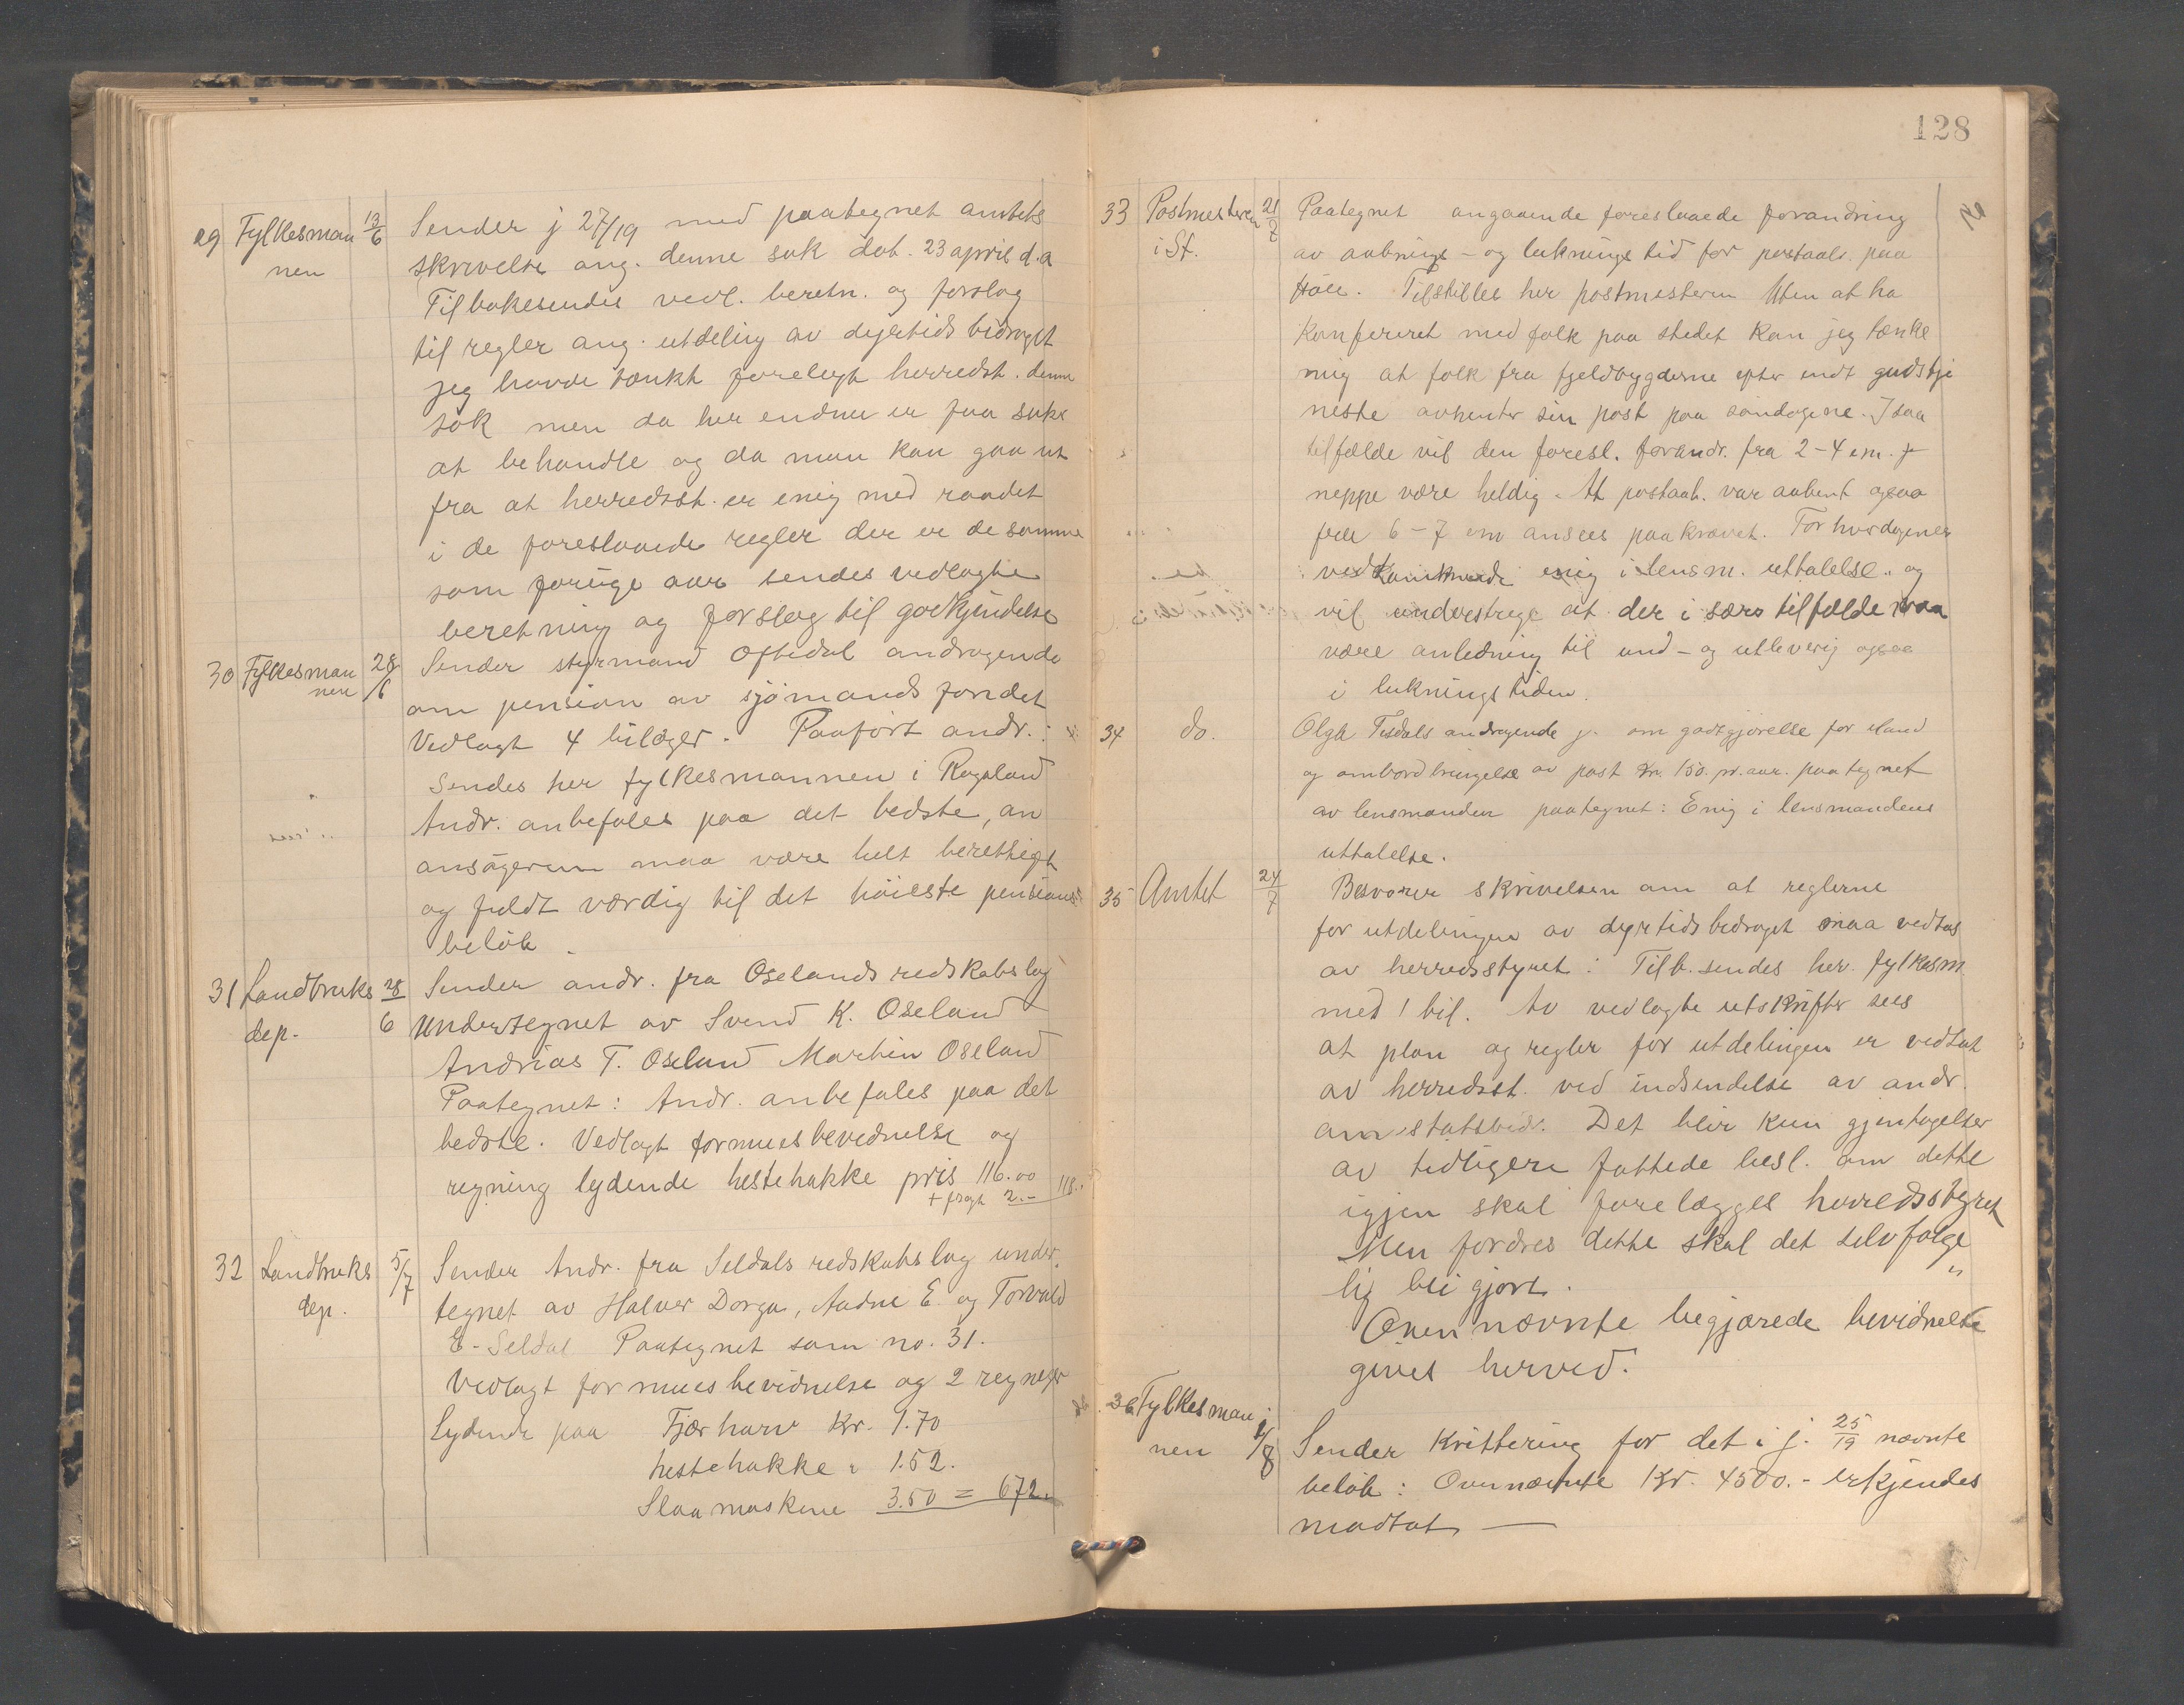 29 Fylkesman 13/6 Sender j 27/19 med paategnet amtets
nen skrivelse ang. denne sak dat. 23 april d.a
Tilbakesendes vedl. beretn. og forslag
til regler ang. utdeling av dyrtids bidraget
jeg havde tænkt forelegt herredst. denne
sak men da her endnu er faa saker
at behandle og da man kan gaa ut
fra at herredsst. er enig med raadet
i de foreslaaede regler der er de samme
som forrige aar sendes vedlagte
beretning og forslag til godkjendelse
30 Fylkesman 28/6 Sender styrmand Oftedal andragende
nen om pension av sjömandsfondet
Vedlagt 4 bilager. Paaført andr. :
Sendes her fylkesmannen i Rogaland
Andr. anbefales paa det bedste, an
ansögeren maa være helt berettiget
og fuldt værdig til det höieste pensions
belöb.
31 Landbruks 28/6 Sender andr. fra Oselands redskabslag
dep. undertegnet av Svend K. Oseland
Andrias T. Oseland Martin Oseland
Paategnet: Andr. anbefales paa det
bedste. Vedlagt formuesbevidnelse og
regning lydende hestehakke pris 116.00
+ fragt 2.- 118.
32 Landbruks 5/7 Sender Andr. fra Seldals redskabslag under
dep. tegnet av Halvor Dorga, Aadne E. og Torvald
E. Seldal Paategnet som no. 31.
Vedlagt formues bevidnelse og 2 regneger
Lydende paa Fjærharv Kr. 1.70
hestehakke " 1.52.
Slaamaskine 3.50 = 672.
128
33 Postmesteren 21/7 Paategnet angaaende foreslaaede forandring
i St. av aabnings- og luknings tid for postaab. paa
Höle. Tilstilles her postmesteren Uten at ha
Konfereret med folk paa stedet kan jeg tænke
mig at folk fra fjeldbygderne efter endt gudstje
neste avhenter sin post paa søndagene. I saa
tilfælde vil den foresl. forandr. fra 2-4 em.
neppe være heldig. At postaab. var aabent ogsaa
fra 6-7 em ansees paakrævet. For hverdagenes
vedkommende enig i lensm. uttalelse. og
vil understrege at der i særs tilfælde maa
være anledning til ind- og utlevering ogsaa
i lukningstiden.
34 do. Olga Tisdals andragende j. om godtgjørelse for iland
og ombordbringelse av post Kr. 150. pr. aar. paategnet
av lensmanden paategnet: Enig i lensmandens
uttalelse.
35 Amtet 24/7 Besvarer skrivelsen om at reglerne
for utdelingen av dyrtidsbidraget maa vedtas
av herredsstyret: Tilb. sendes her. fylkesm.
med 1 bil. Av vedlagte utskrifter sees
at plan og regler for utdelingen er vedtat
av herredsst. ved indsendelse av andr.
om statsbidr. Det blir kun gjentagelser
av tidligere fattede besl. om dette
igjen skal forelægges herredsstyret
Men fordres dette skal det selvfølge
lig bli gjort.
Ovennævnte begjærede bevidnelse
gives herved.
36 Fylkesman 1/8
nen Sender Kvittering for det i j. 25/19 nævnte
beløb: Ovennævnte Kr. 4500.- erkjendes
modtat —